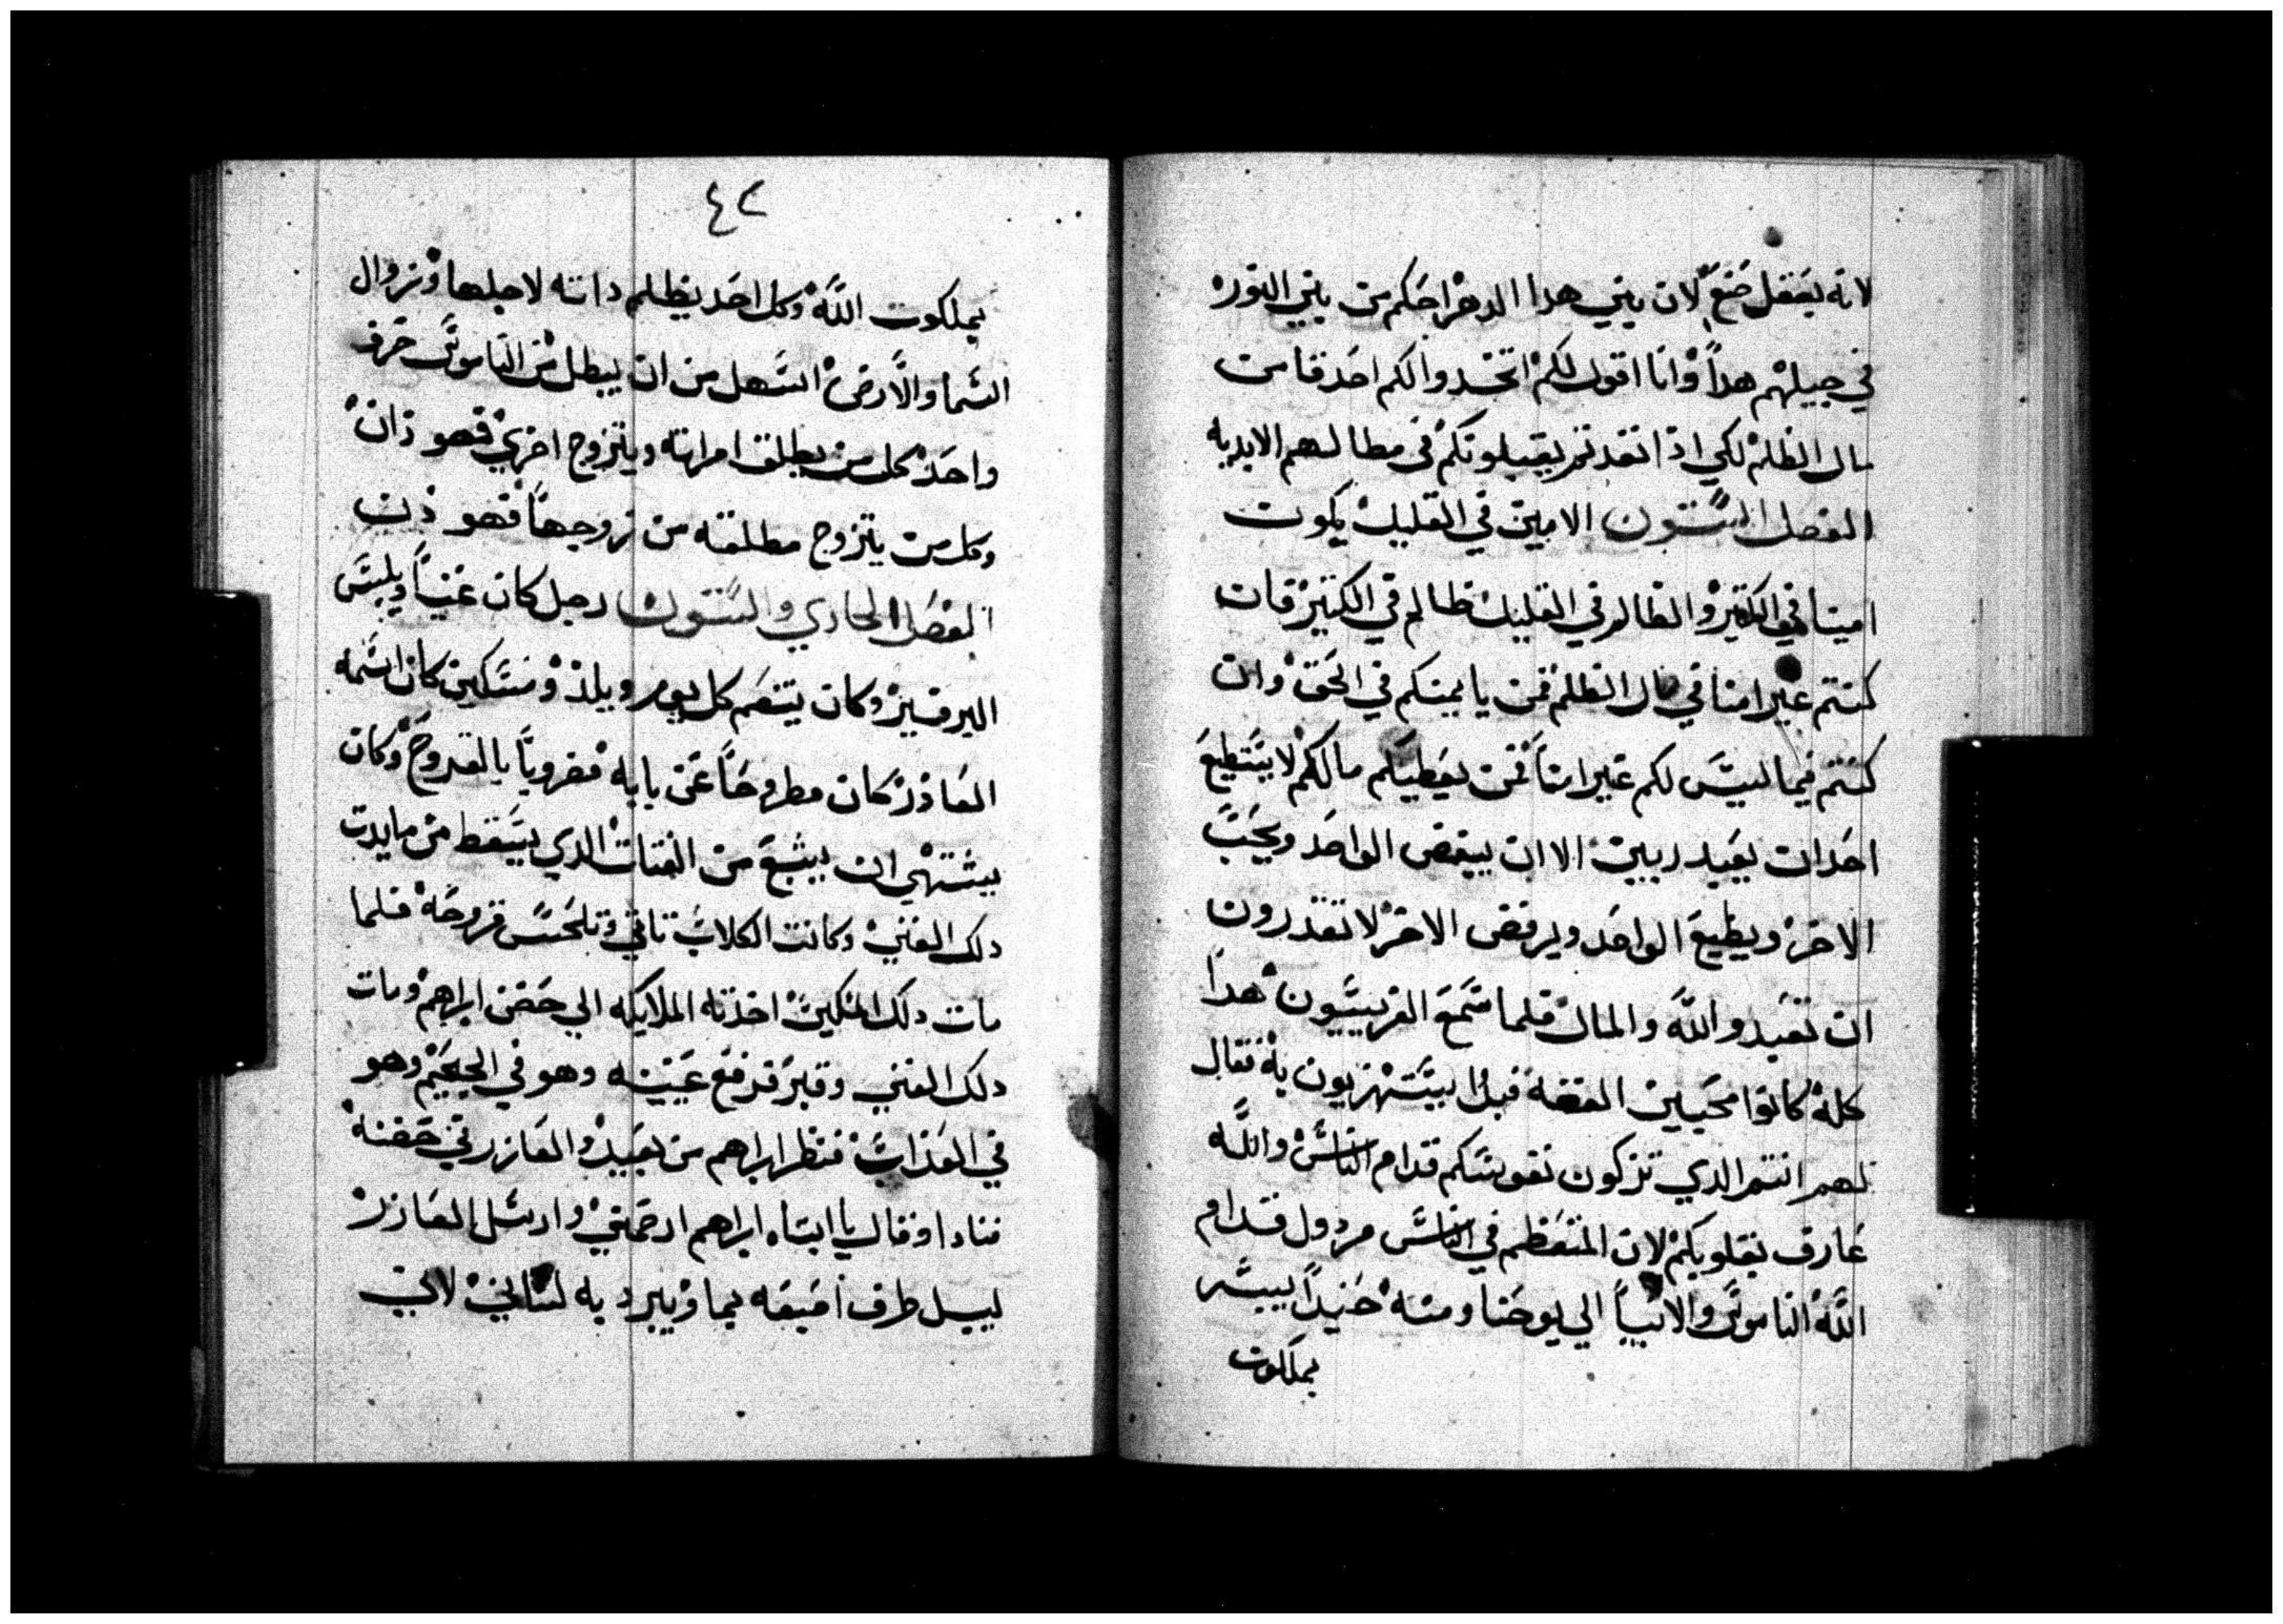 لانه يعقل ضنع لان بني هدا الدهر احكم من بني النور
في جيلهم هداً وانا اقول لكم اتخدوا لكم اصدقا من
مال الظلم لكي اذا نفدتم يقبلونكم في مظالهم الابديه
الفصل الستون الامين في القليل يكون
امينا في الكتير والظالم في القليل ظالم في الكتير فان
كنتم غير امنا في مال الظلم فمن يايمنكم في الحق وان
كنتم فيما ليس لكم غير امنا فمن يعطيكم مالكم لا يستطيع
احد ان يعبد ربين الا ان يبغض الواحد ويحب
الاخر ويطيع الواحد ويرفض الاخر لا تقدرون
ان تعبدوا الله والمال فلما سمع الفريسيون هدا
كله كانوا محبين الفضه فبدا يستهزيون به فقال
لهم انتم الدي تزكون نفوسكم قدام الناس والله
عارف بقلوبكم لان المتعظم في الناس مردول قدام
الله الناموس والانبيا الي يوحنا ومنه حنيداً يبشر
بملكوت
٤٢
بملكوت الله وكل احد يظلم داته لاجلها وزوال
السما والارض اسهل من ان يبطل من الناموس حرف
واحد كل من يطلق امراته ويتزوج اخري فهو زان
وكل من يتزوج مطلقه من زوجها فهو زان
الفصل الحادي والستون رجل كان غنياً ويلبس
البرفير وكان يتنعم كل يوم ويلذ ومسكين كان اسمه
العازر كان مطروحاً عن بابه مضروباً بالقروح وكان
يشتهي ان يشبع من الفتات الدي يسقط من مايدت
دلك الغني وكانت الكلاب تاتي وتلحس قروحه فلما
مات دلك المسكين اخذته الملايكه الي حضن ابراهم ومات
دلك الغني وقبر فرفع عينيه وهو في الجحيم وهو
في العذاب فنظر ابراهم من بعيد والعازر في حضنه
فنادا وقال يا ابتاه ابراهم ارحمني وارسل العازر
ليبل طرف اصبعه بما ويبرد به لساني لاني